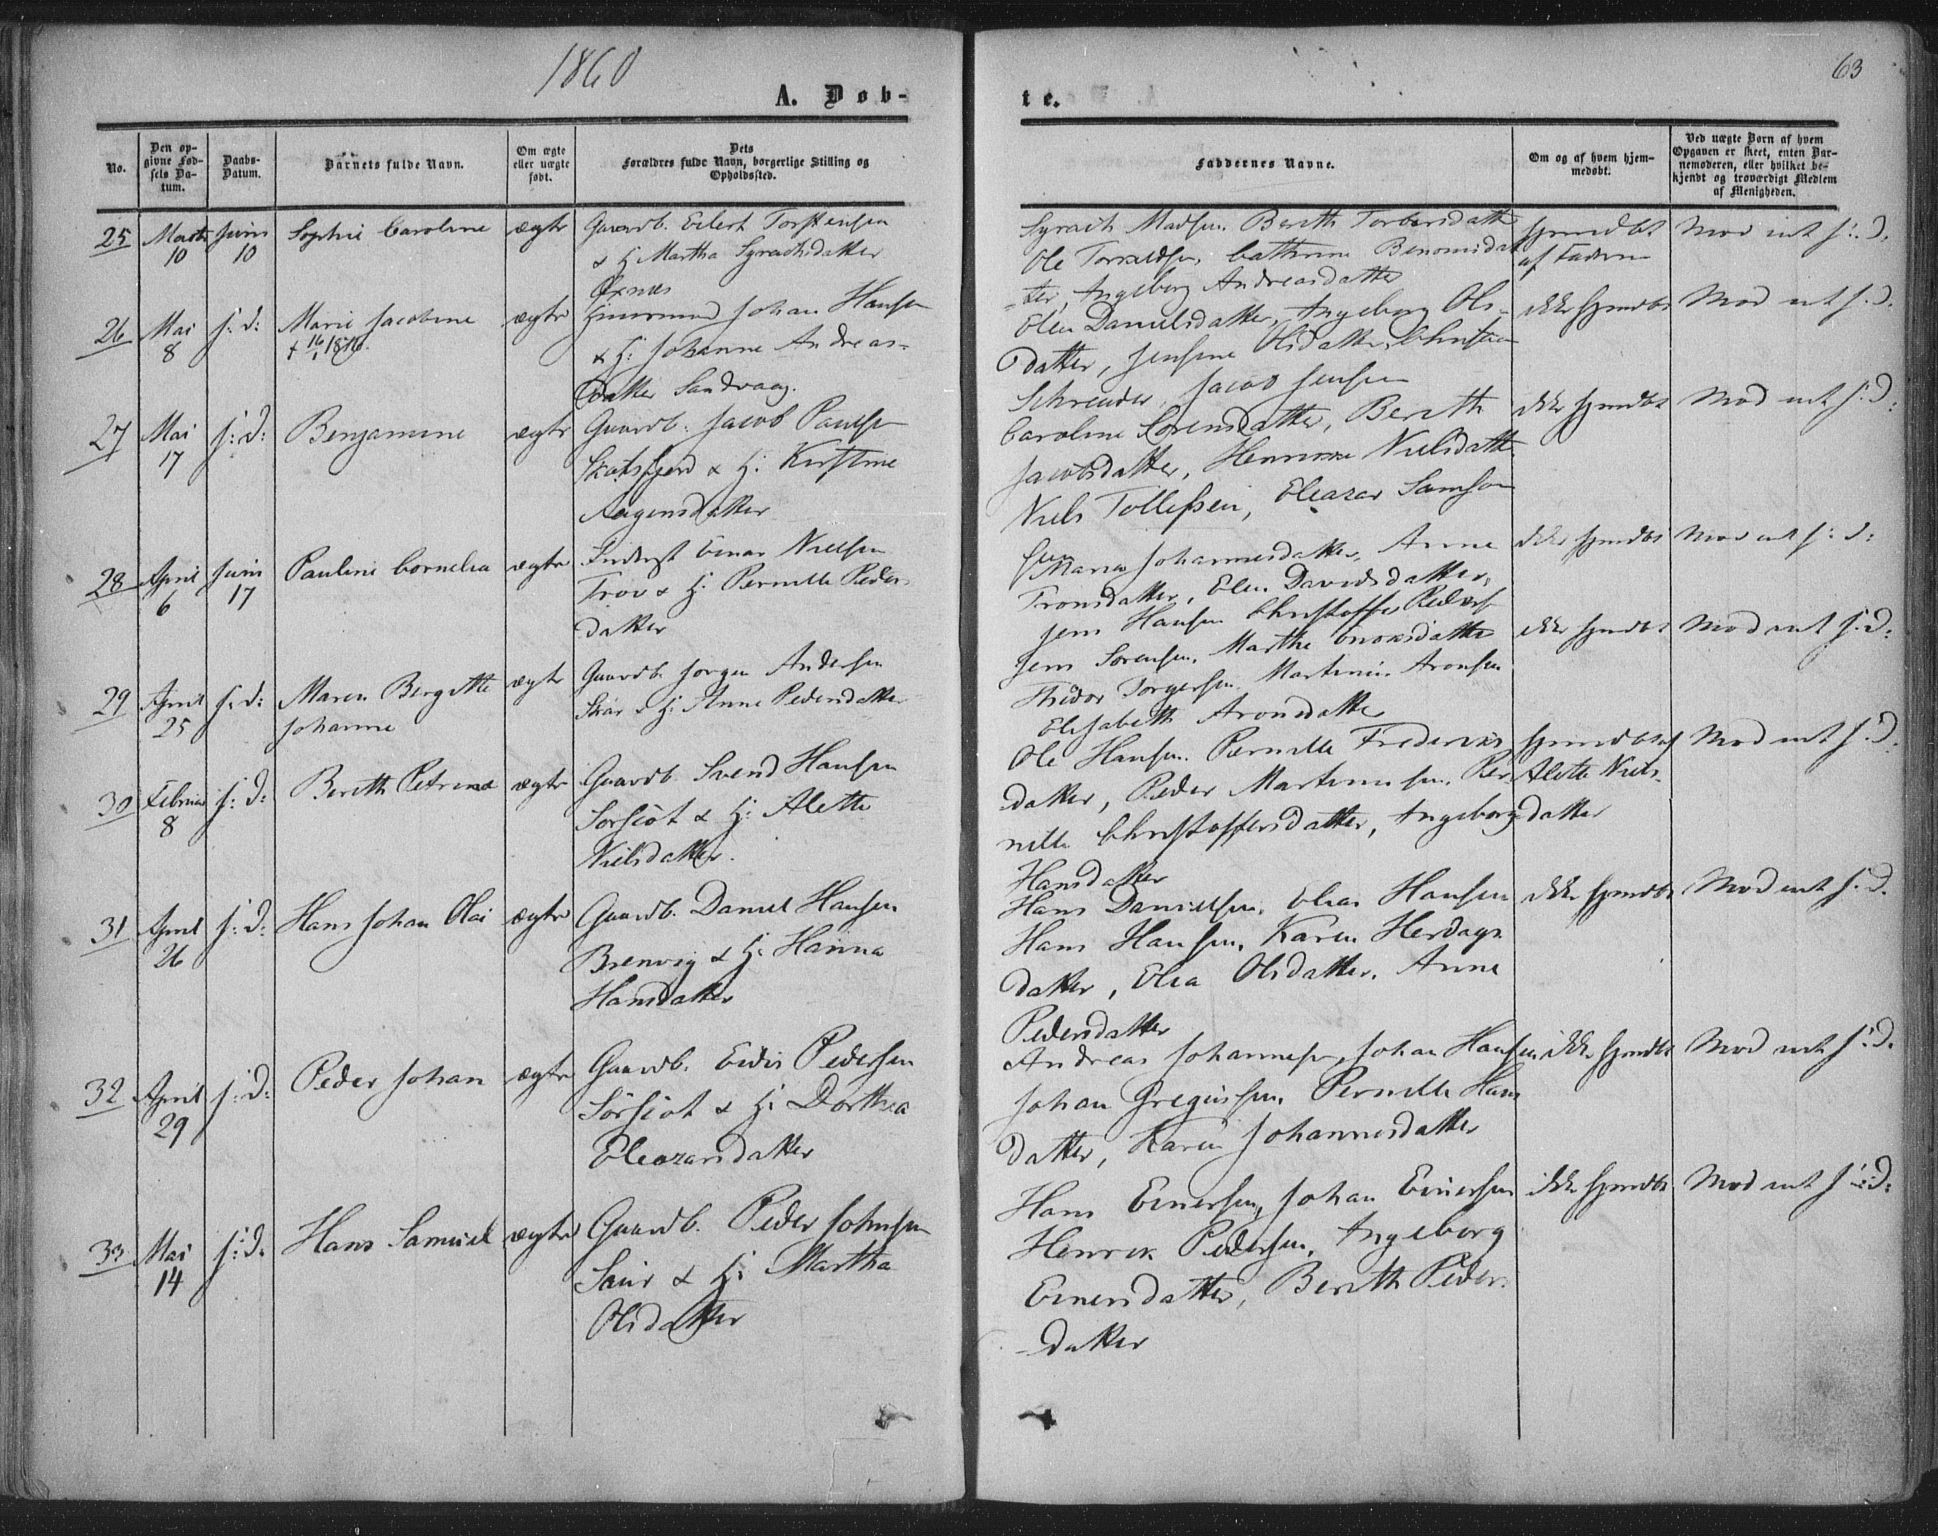 1860
63
A. Døb-
te.
No.
Den op-
givne Fød-
sels Da-
tum.
Daabs-
Datum.
Barnets fulde Navn.
Om ægte
eller uægte
født.
Dets
Forældres fulde Navn, borgerlige Stilling og
Opholdssted.
Faddernes Navne.
Om og af hvem hjem-
medøbt.
Ved uægte Børn af hvem
Opgaven er skeet, enten Bar-
nemoderen, eller hvilket be-
kjendt og troværdigt Medlem
af Menigheden.
25
Marts
10
Juni
10
Sophie Caroline
ægte
Gaardb. Eilert Torstensen
& H: Martha Syrachsdatter
Øxnes
Syrach Madsen. Bereth Torbersdatt
Ole Cathrine Benonisdat
-ter, Ingeborg Andreasdatter
hjemdbt
af Faderen
Mod int s: d.
26
Mai
8
s: d:
Marie Jacobine
† 16/1 1876.
ægte
Johan Hansen
& H: Johanne Andreas-
datter Sandvaag.
Elen Danielsdatter, Ingeborg Ols-
datter, Jensine Olsdatter, Christian
Schreuder, Jacob Jensen
ikke hjemdbt
Mod int s: d.
27
Mai
17
s: d:
Benjamine
ægte
Gaardb. Jacob Paulsen
Skatsfjord & H: Kirstine
Aagensdatter
Caroline Sørensdatter, Bereth
Jacobsdatter, Nielsdatt
Niels Tollefsen, Eleazar Samson
ikke hjemdbt
Mod int s: d:
28
April
6
Juni
17
Pauline Cornelia
ægte
Inderst Einar Nielsen
& H: Pernille Peders
datter
Maren Johannesdatter, Anne
Tronsdatter, Elen Davidsdatter,
Jens Hansen Christoffer Peders
ikke hjemdbt
Mod int s: d:
29
April
25
s: d:
Maren Bergitte
Johanne
ægte
Gaardb Jørgen Andersen
Skar & H: Anne Pedersdatter
Jens Sørensen, Marthe Enoksdatter
Martinus Aronsen
Elisabeth Aronsdatter
ikke hjemdbt
Mod int s: d:
30
Februar
8
s: d:
Bereth Petrine
ægte
Gaardb. Svend Hansen
Sørfiot & H: Alette
Nielsdatter.
Ole Hansen. Pernille Frederiks
datter, Peder Martinusen, Per
nille Christoffersdatter, Ingeborg
Hansdatter
hjemdbt af
Alette Niels-
datter
Mod int s: d.
31
April
26
s: d:
Hans Johan Olai
ægte
Gaardb. Daniel Hansen
Brenvig & H: Hanna
Hansdatter
Hans Danielsen, Elias Hansen
Hans Hansen, Karen Herdags
datter, Elea Olsdatter, Anne
Pedersdatter
ikke hjemdbt
Mod int s: d.
32
April
29
s: d:
Peder Johan
ægte
Gaardb. Pedersen
Sørfiot & H: Dorthea
Eleazarsdatter
Andreas Johannesen, Johan Hansen
Johan Gregussen, Pernille Hans
datter, Karen Johannesdatter
ikke hjemdbt
Mod int s: d.
33
Mai
14
s: d.
Hans Samuel
ægte
Gaardb. Peder Johnsen
Saur & H: Martha
Olsdatter
Hans Einersen, Johan Einersen
Henrik Pedersen, Ingeborg
Einersdatter, Bereth Peder.
-datter
ikke hjemdbt
Mod int s: d: